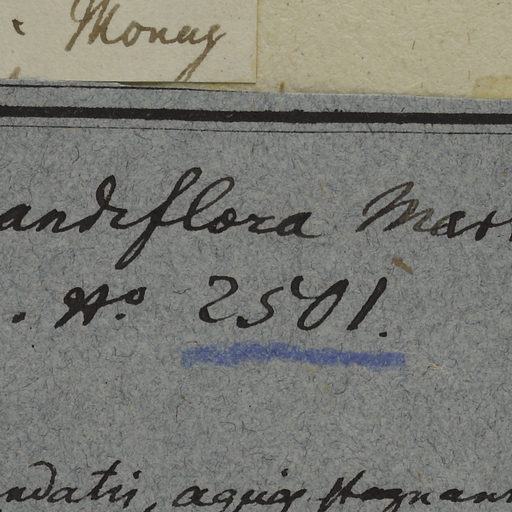 andiflora Mart
. No. 2501.
ndatis, aquis stagnan